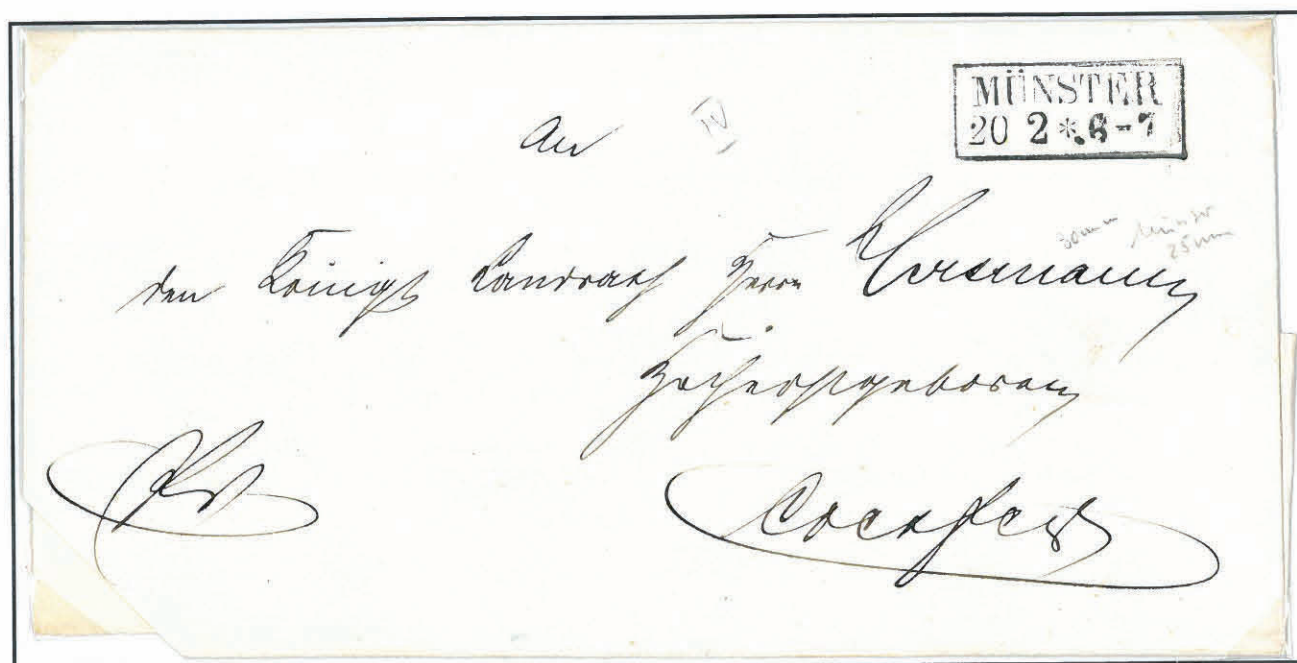 MÜNSTER
20 2 * 6-7
An
IV
den Königl Landrath Herrn
30mm Münster
25mm
Hochwohlgeboren
Coesfeld